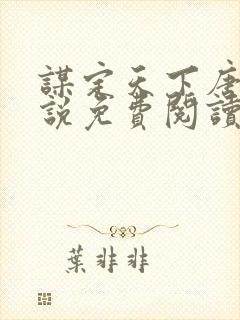 謀定天下唐
說免費閱讀
葉非非